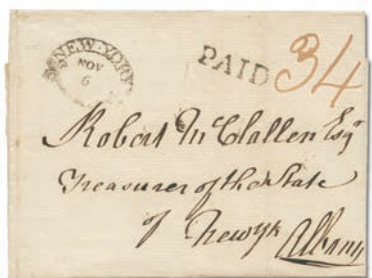 NEW-YORK
NOV
6
PAID 34
Robert McClallen Esqr
Treasurer of the State
of Newyk Albany